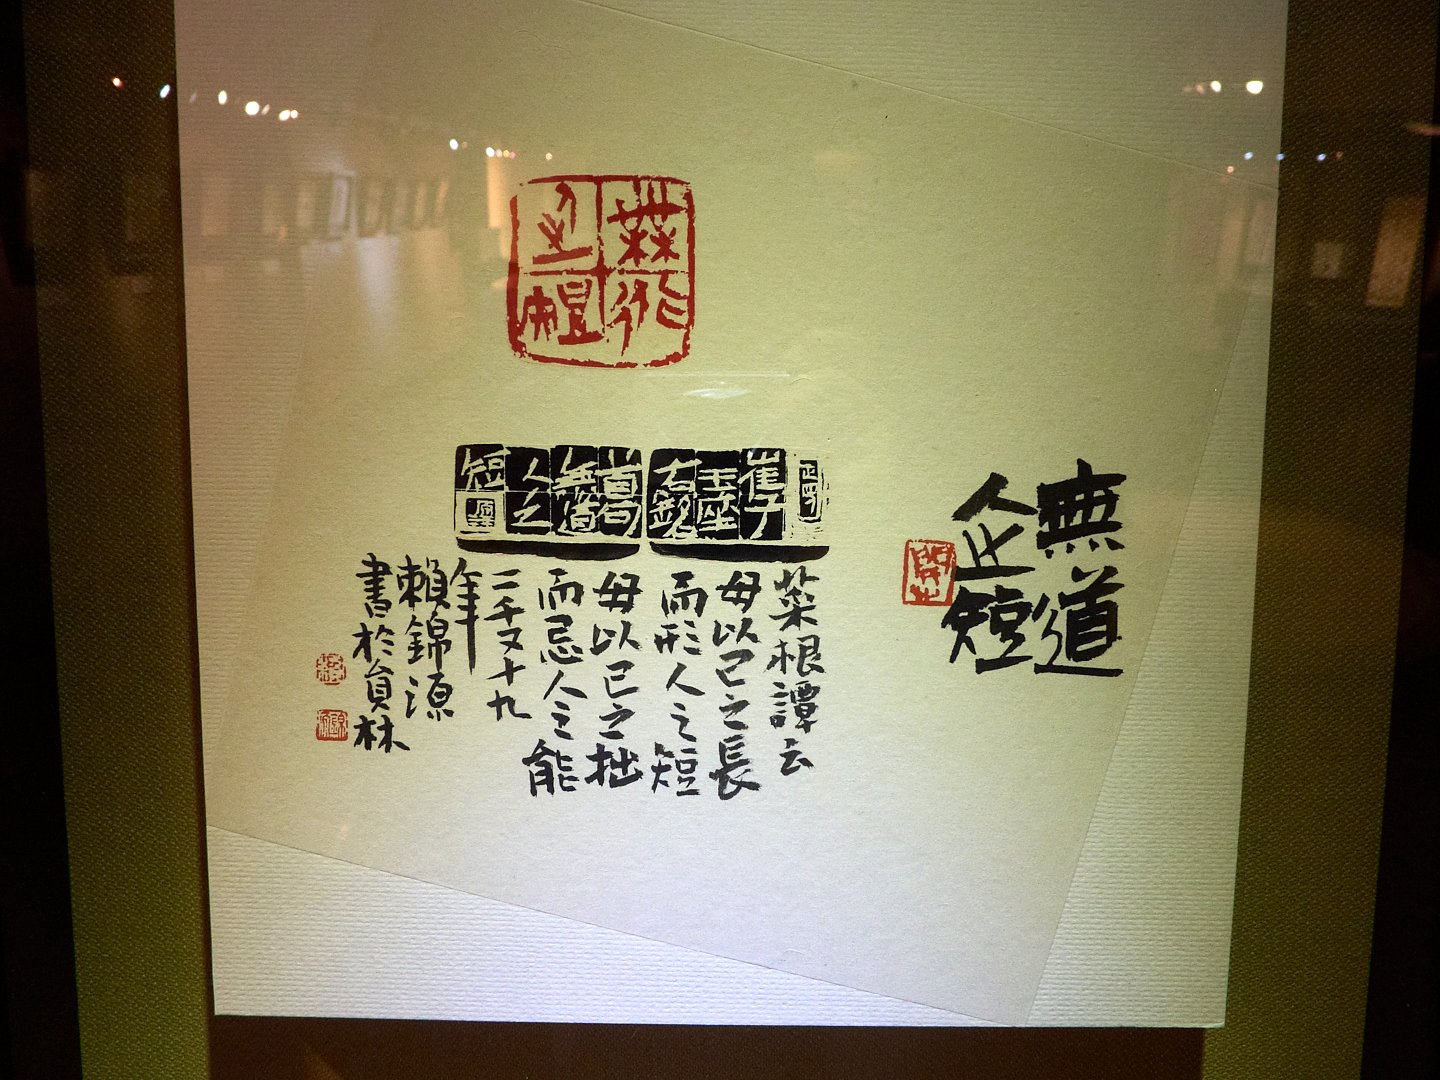 無道
人之短
無道人之短
崔子
玉座
右銘
首句
無道
人之
短
菜根譚云
毋以己之長
而形人之短
毋以己之拙
而忌人之能
二千又十九
年
賴錦源
書於員林